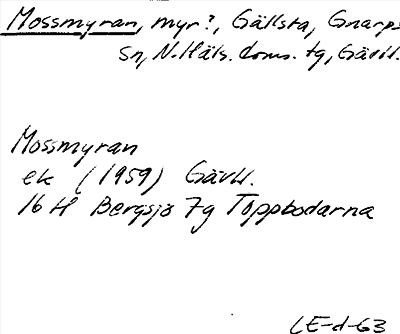 Mossmyran, myr?, Gällsta, Gnarps
Sn, N. Häls. doms. tg, Gävll.
Mossmyran
ek (1959) Gävll.
16 H Bergsjö 7g Toppbodarna
LE-d-63